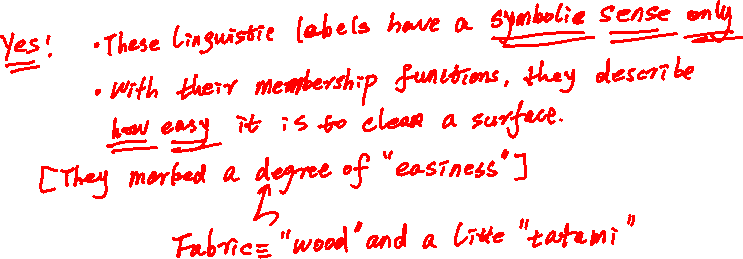 Yes! • These linguistic labels have a symbolic sense only
• With their membership functions, they describe
how easy it is to clean a surface.
[They marked a degree of "easiness"]
Fabric = "wood" and a little "tatami"